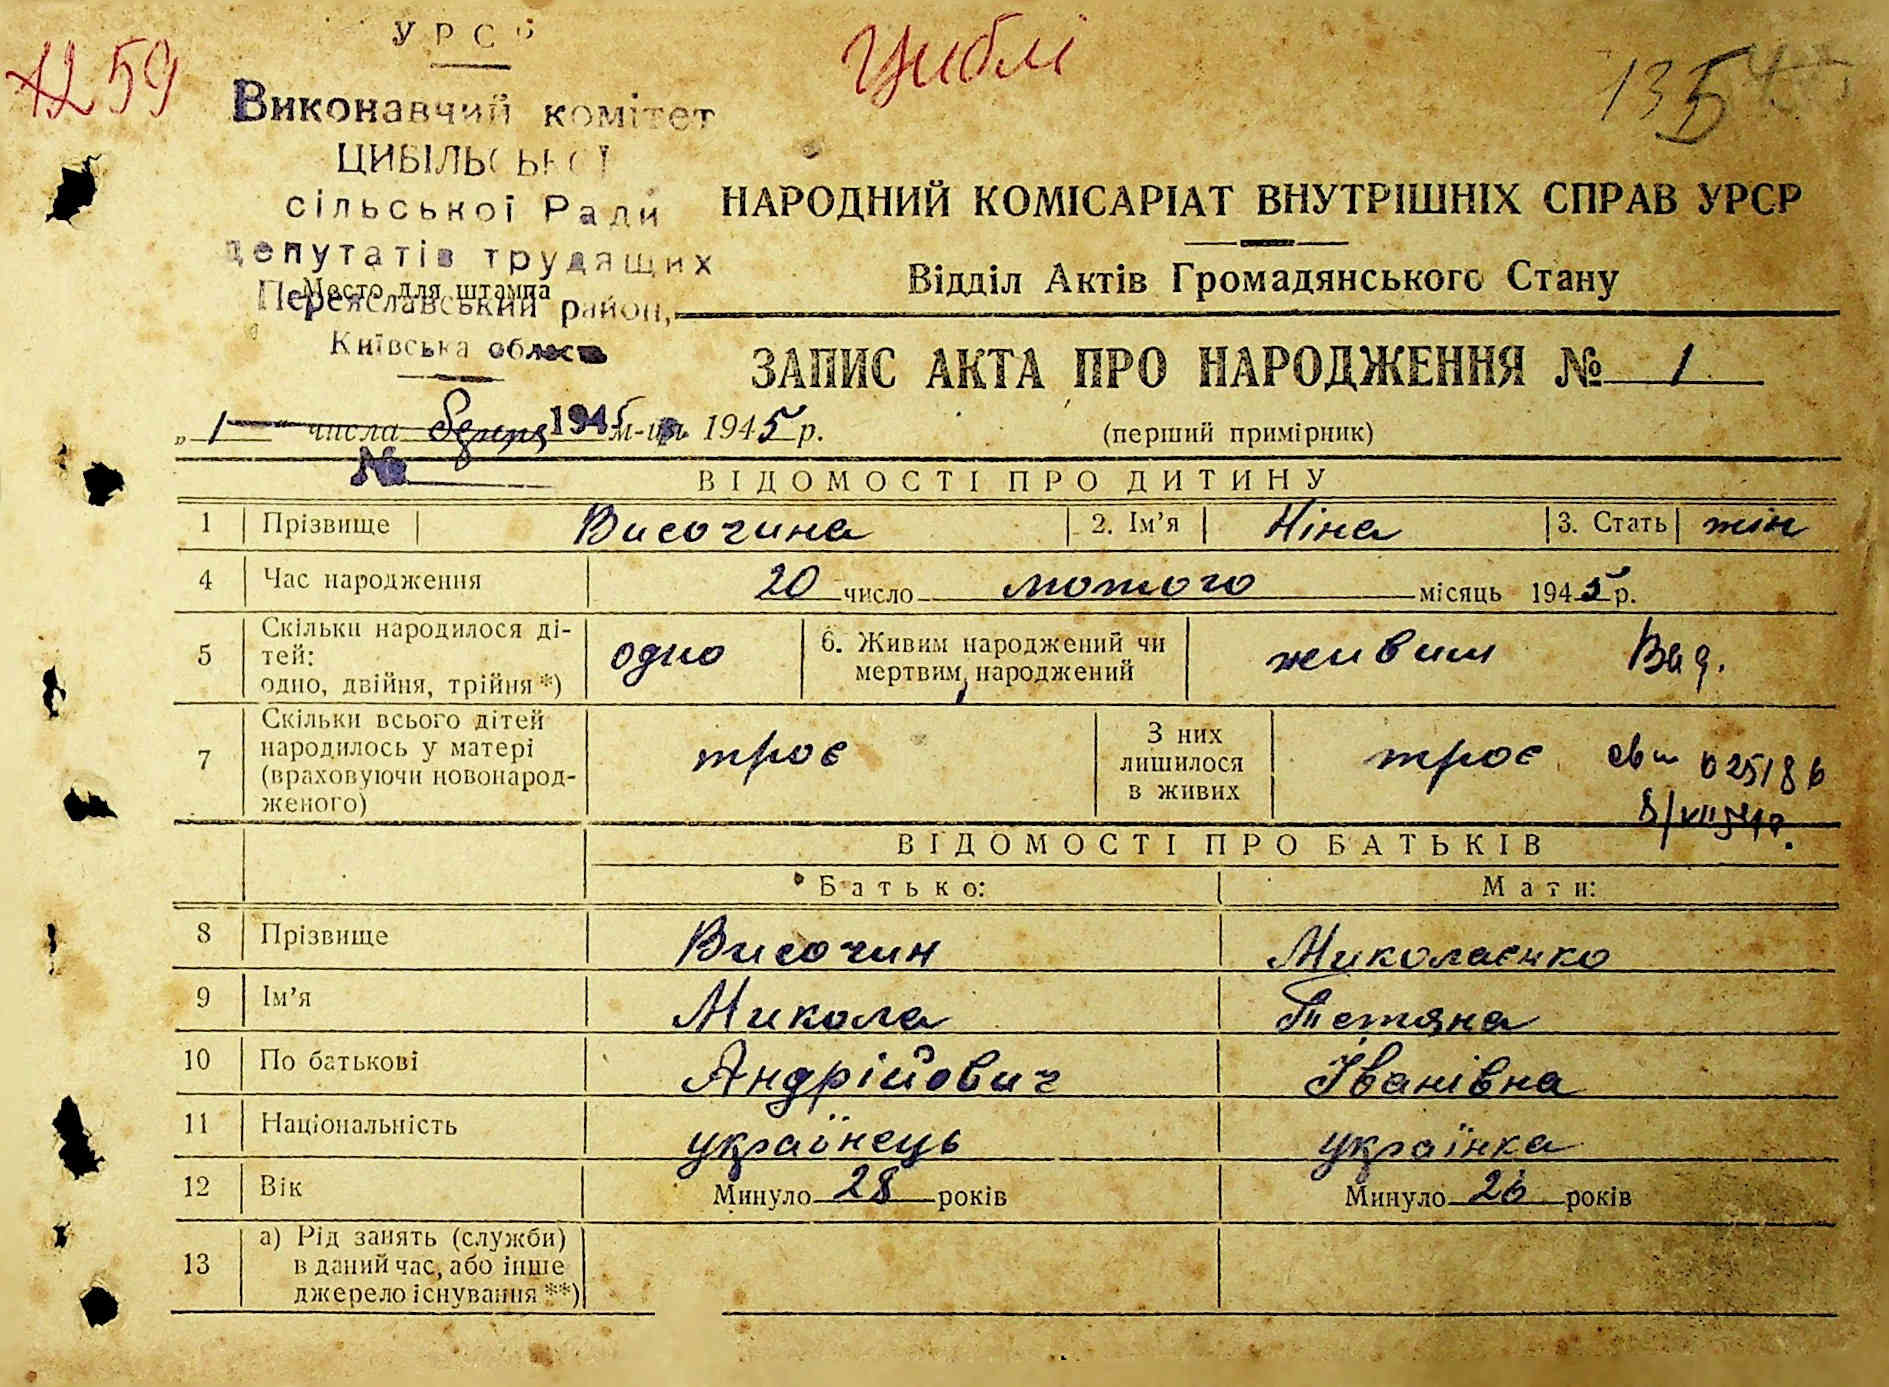 УРСР
1259
Циблі
Виконавчий комітет
ЦИБІЛЬСЬКОЇ
сільської Ради
депутатів трудящих
Место для штампа
Переяславський район,
Київська область
НАРОДНИЙ КОМІСАРІАТ ВНУТРІШНІХ СПРАВ УРСР
Відділ Актів Громадянського Стану
ЗАПИС АКТА ПРО НАРОДЖЕННЯ № 1
„ 1 " числа 194 м-ця 1945 р.
(перший примірник)
№
ВІДОМОСТІ ПРО ДИТИНУ
1 Прізвище Височина 2. Ім'я Ніна 3. Стать жін
4 Час народження 20 число лютого місяць 1945 р.
5 Скільки народилося ді-
тей:
одно, двійня, трійня *)
одно
6. Живим народжений чи
мертвим народжений
живим
7 Скільки всього дітей
народилось у матері
(враховуючи новонарод-
женого)
троє
З них
лишилося
в живих
троє
ВІДОМОСТІ ПРО БАТЬКІВ
Батько: Мати:
8 Прізвище Височин Миколаєнко
9 Ім'я Микола Тетяна
10 По батькові Андрійович Іванівна
11 Національність українець українка
12 Вік Минуло 28 років Минуло 26 років
13 а) Рід занять (служби)
в даний час, або інше
джерело існування **)